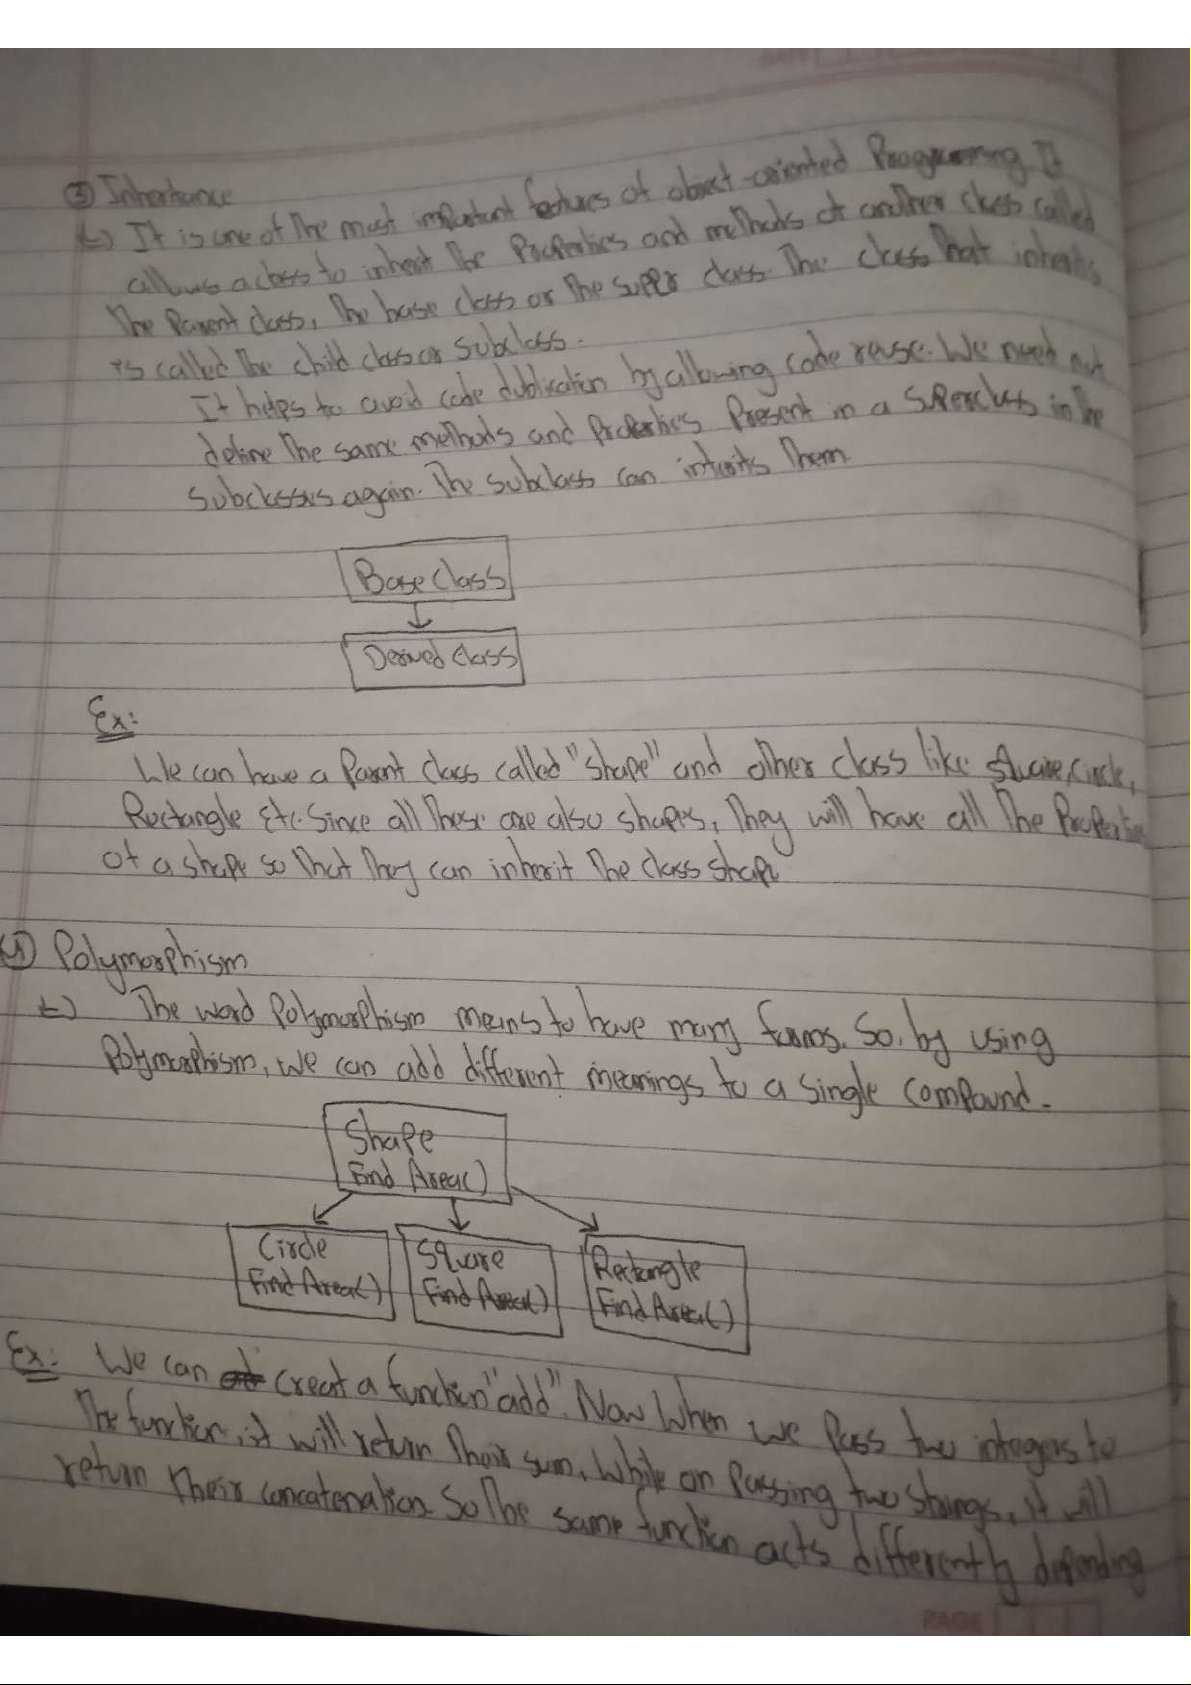 ③ Inheritance
↳ It is one of the most important features of object-oriented Programming It
allows a class to inherit the Properties and methods of another class called
The Parent class, The base class or The super class. The class That inherits
is called The child class or subclass.
It helps to avoid code dublication by allowing code reuse. We need not
define The same methods and Properties Present in a superclass in The
subclesses again. The subclass can interits Them.
Base Class
Derived class
Ex:
We can have a Parent class called "shape" and other class like square, Circle,
Rectangle Etc. Since all These are also shapes, They will have all The Properties
of a shape so That They can inherit The class shape
④ Polymorphism
↳ The word Polymorphism means to have many forms. So, by using
Polymorphism, we can add different meanings to a single compound.
Shape
Find Area()
Circle
Find Area()
Square
Find Area()
Rectangle
Find Area()
Ex: We can creat a function "add". Now When we Pass two integers to
The function, it will return Their sum, While on Passing two strings, it will
return Their concatenation. So The same function acts differently depending
PAGE